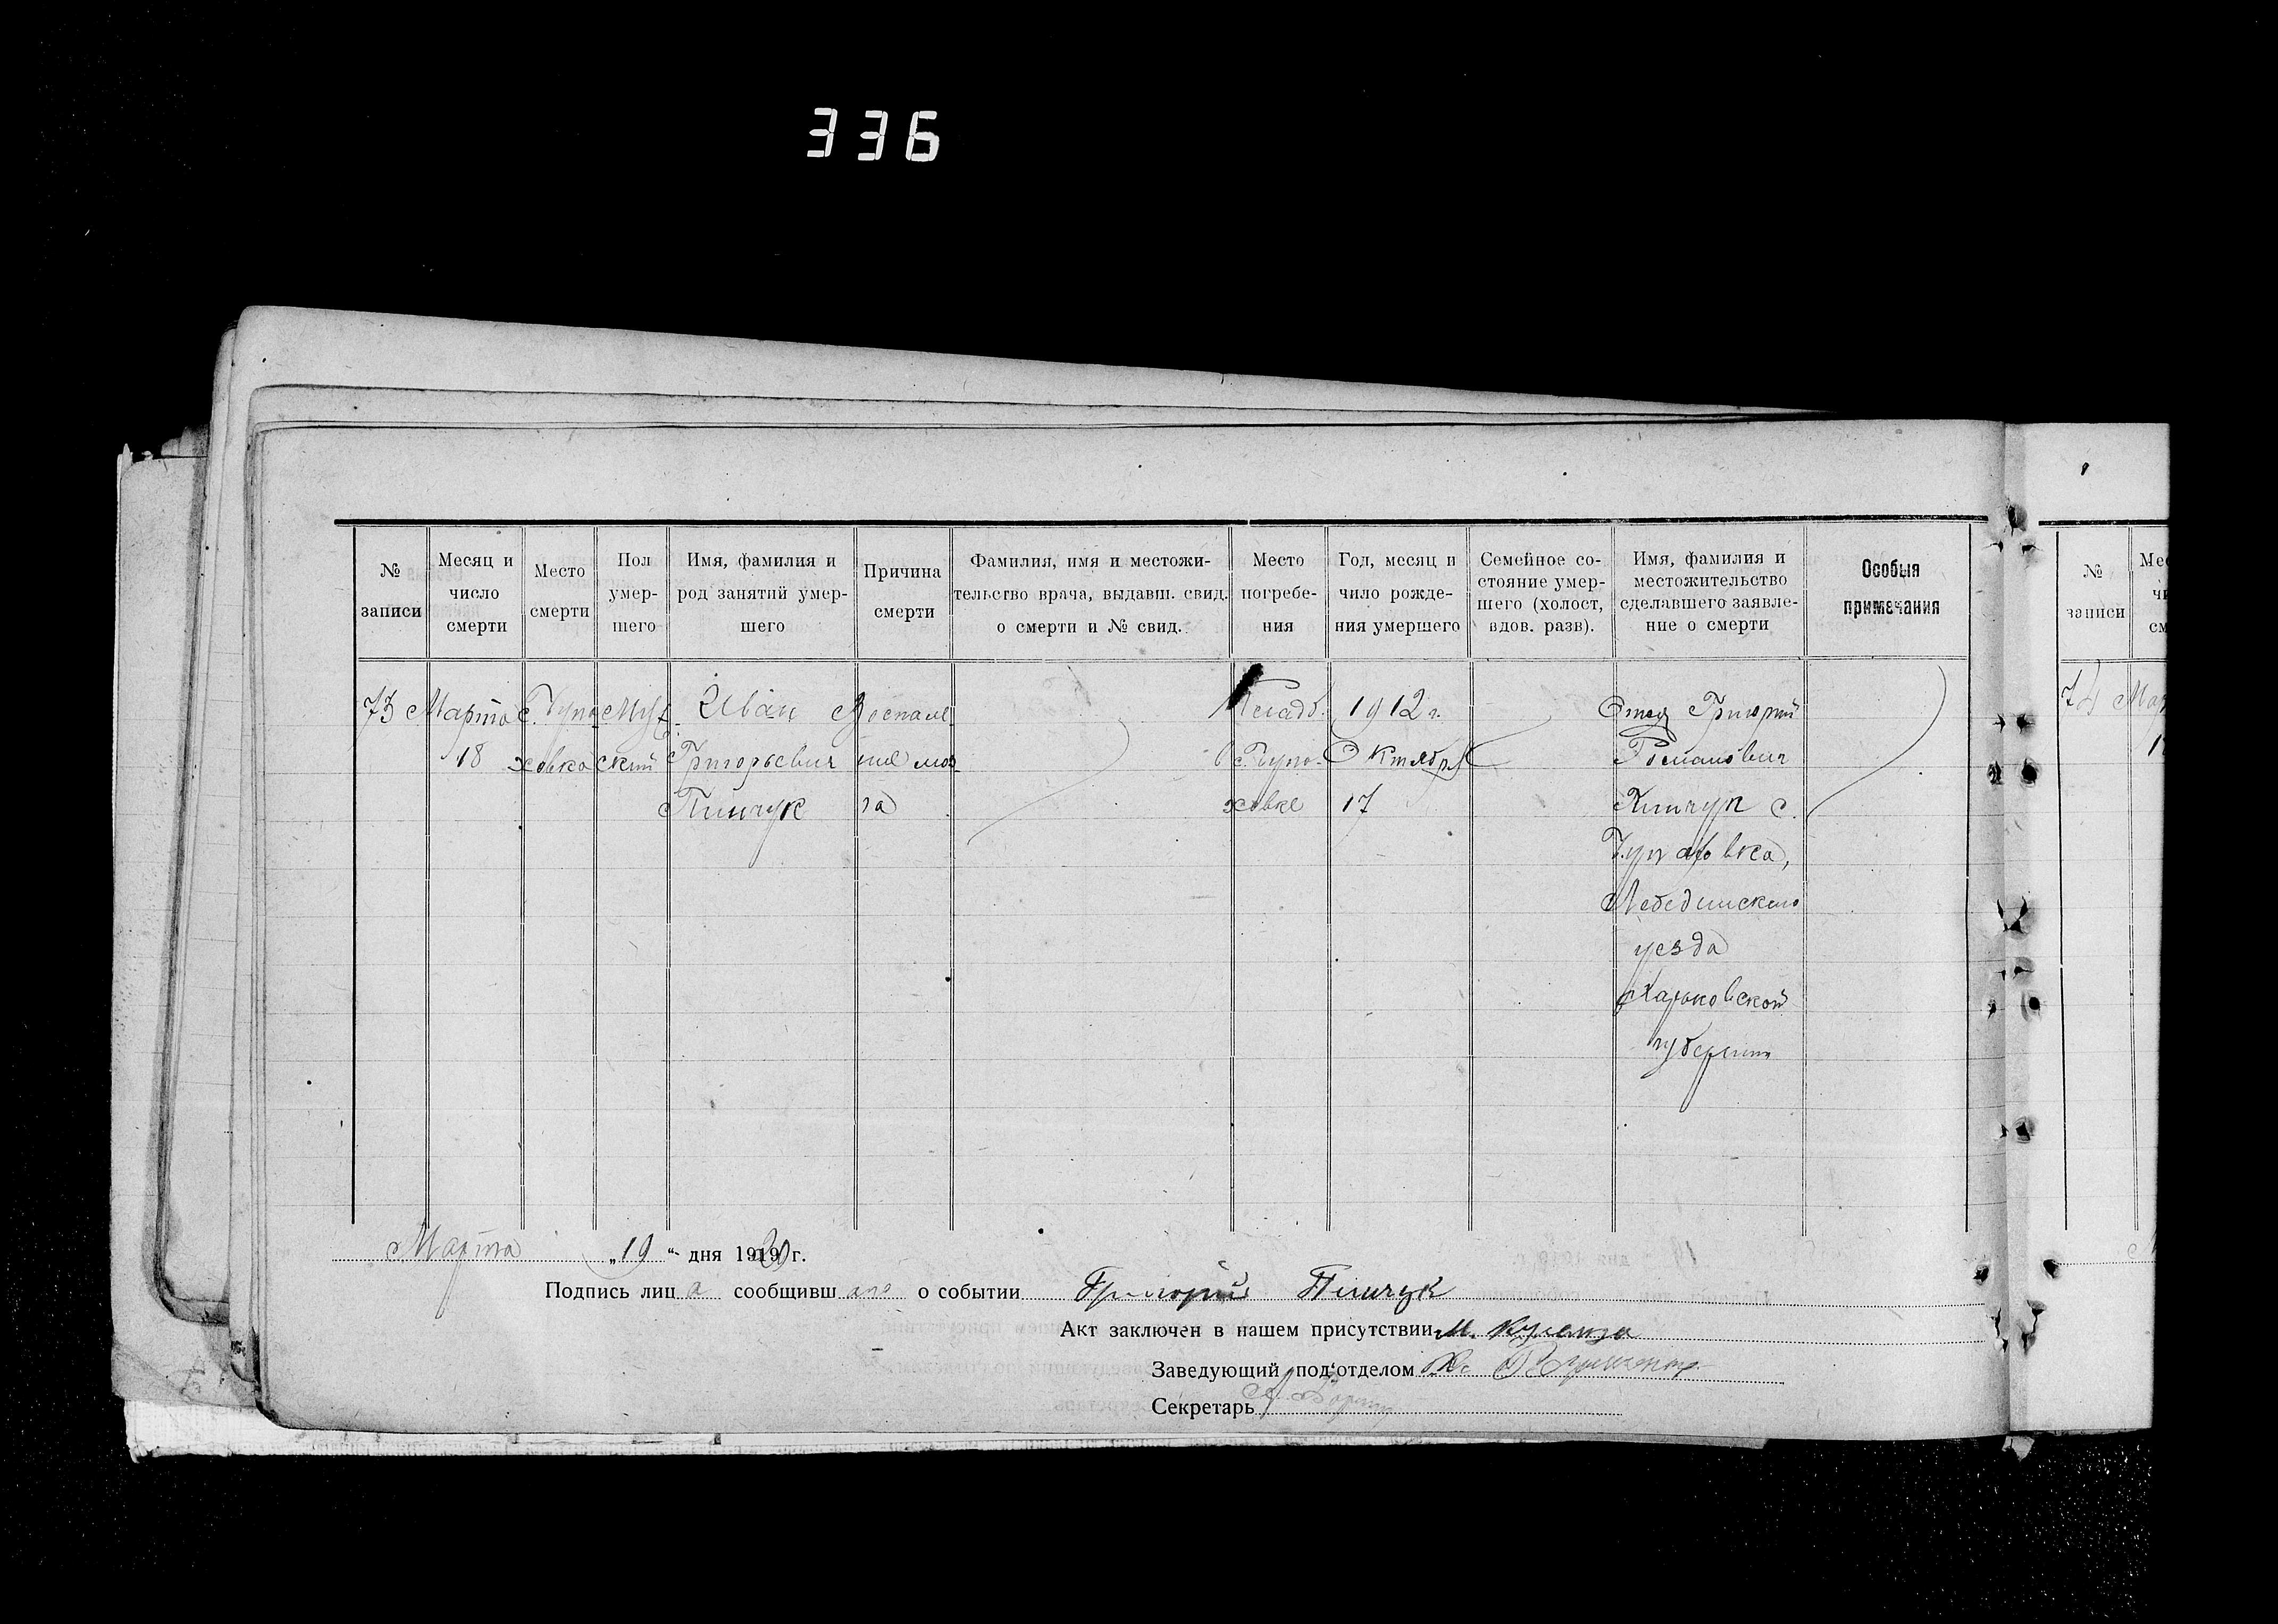 336
№ записи
Месяц и число смерти
Место смерти
Пол умер- шего
Имя, фамилия и род занятий умер- шего
Причина смерти
Фамилия, имя и местожи- тельство врача, выдавш. свид. о смерти и № свид.
Место погребе- ния
Год, месяц и чило рожде- ния умершего
Семейное со- стояние умер- шего (холост, вдов. разв).
Имя, фамилия и местожительство сделавшего заявле- ние о смерти
Особыя примечания
№ записи
73
Марта
18
с. Чупа-
ховка
Муж-
ский
Иван
Григорьевич
Пинчук
Воспале
ние моз
га
Кладб.
в с. Чупа-
ховке
1912 г.
Октября
17
Отец Григорий
Романович
Пинчук с.
Чупаховка,
Лебединского
уезда
Харьковской
губернии
74
Марта „19“ дня 1919 г.
Подпись лица сообщившаго о событии Григорий Пинчук
Акт заключен в нашем присутствии М.
Заведующий под'отделом
Секретарь